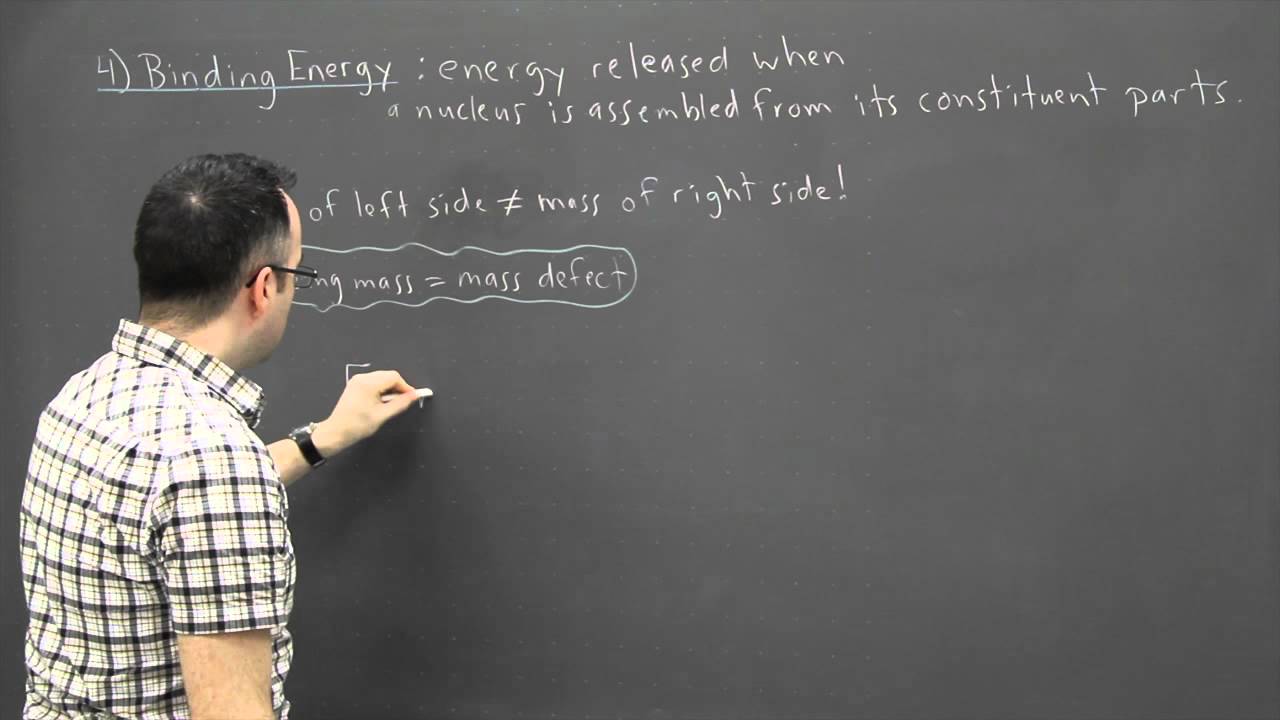 4) Binding Energy : energy released when
a nucleus is assembled from its constituent parts.
of left side ≠ mass of right side!
mass = mass defect